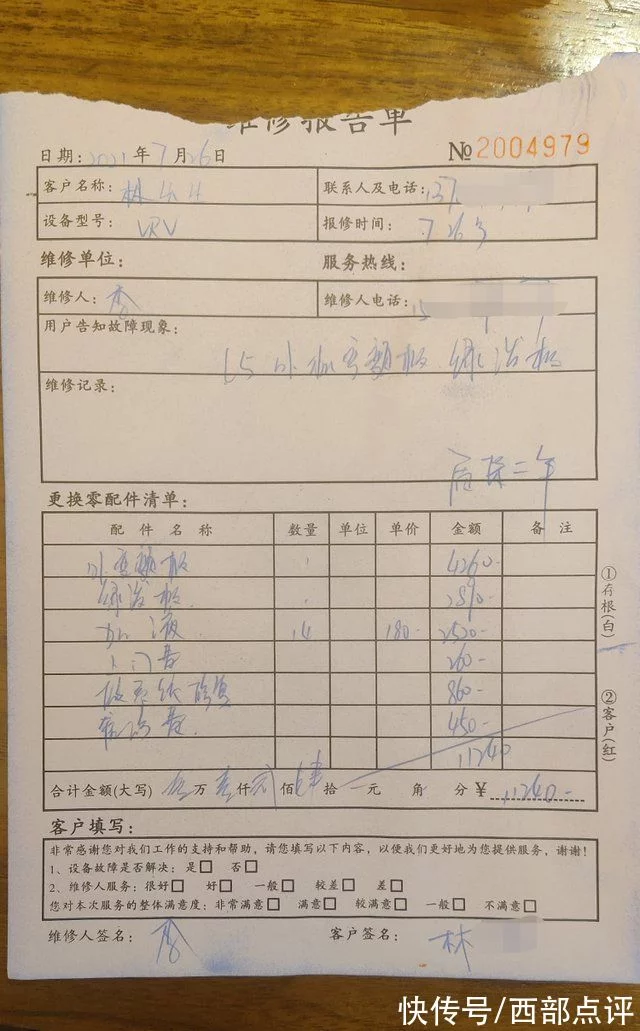 维修报告单
日期：2021年7月26日 №2004979
客户名称：林 联系人及电话：137
设备型号：VRV 报修时间：7.26号
维修单位： 服务热线：
维修人：李 维修人电话：15
用户告知故障现象：
外 变频板
维修记录：
质保二年
更换零配件清单：
配件名称 数量 单位 单价 金额 备注
外变频板 1 4260-
2890-
加液 14 180- 2520-
上门费 260-
做系统 860-
450-
11240
合计金额(大写) 万壹仟 佰肆拾 元 角 分¥ 11240-
①存根(白)
②客户(红)
客户填写：
非常感谢您对我们工作的支持和帮助，请您填写以下内容，以便我们更好地为您提供服务，谢谢！
1、设备故障是否解决：是□ 否□
2、维修人服务：很好□ 好□ 一般□ 较差□ 差□
您对本次服务的整体满意度：非常满意□ 满意□ 较满意□ 一般□ 不满意□
维修人签名：李 客户签名：林
快传号/西部点评